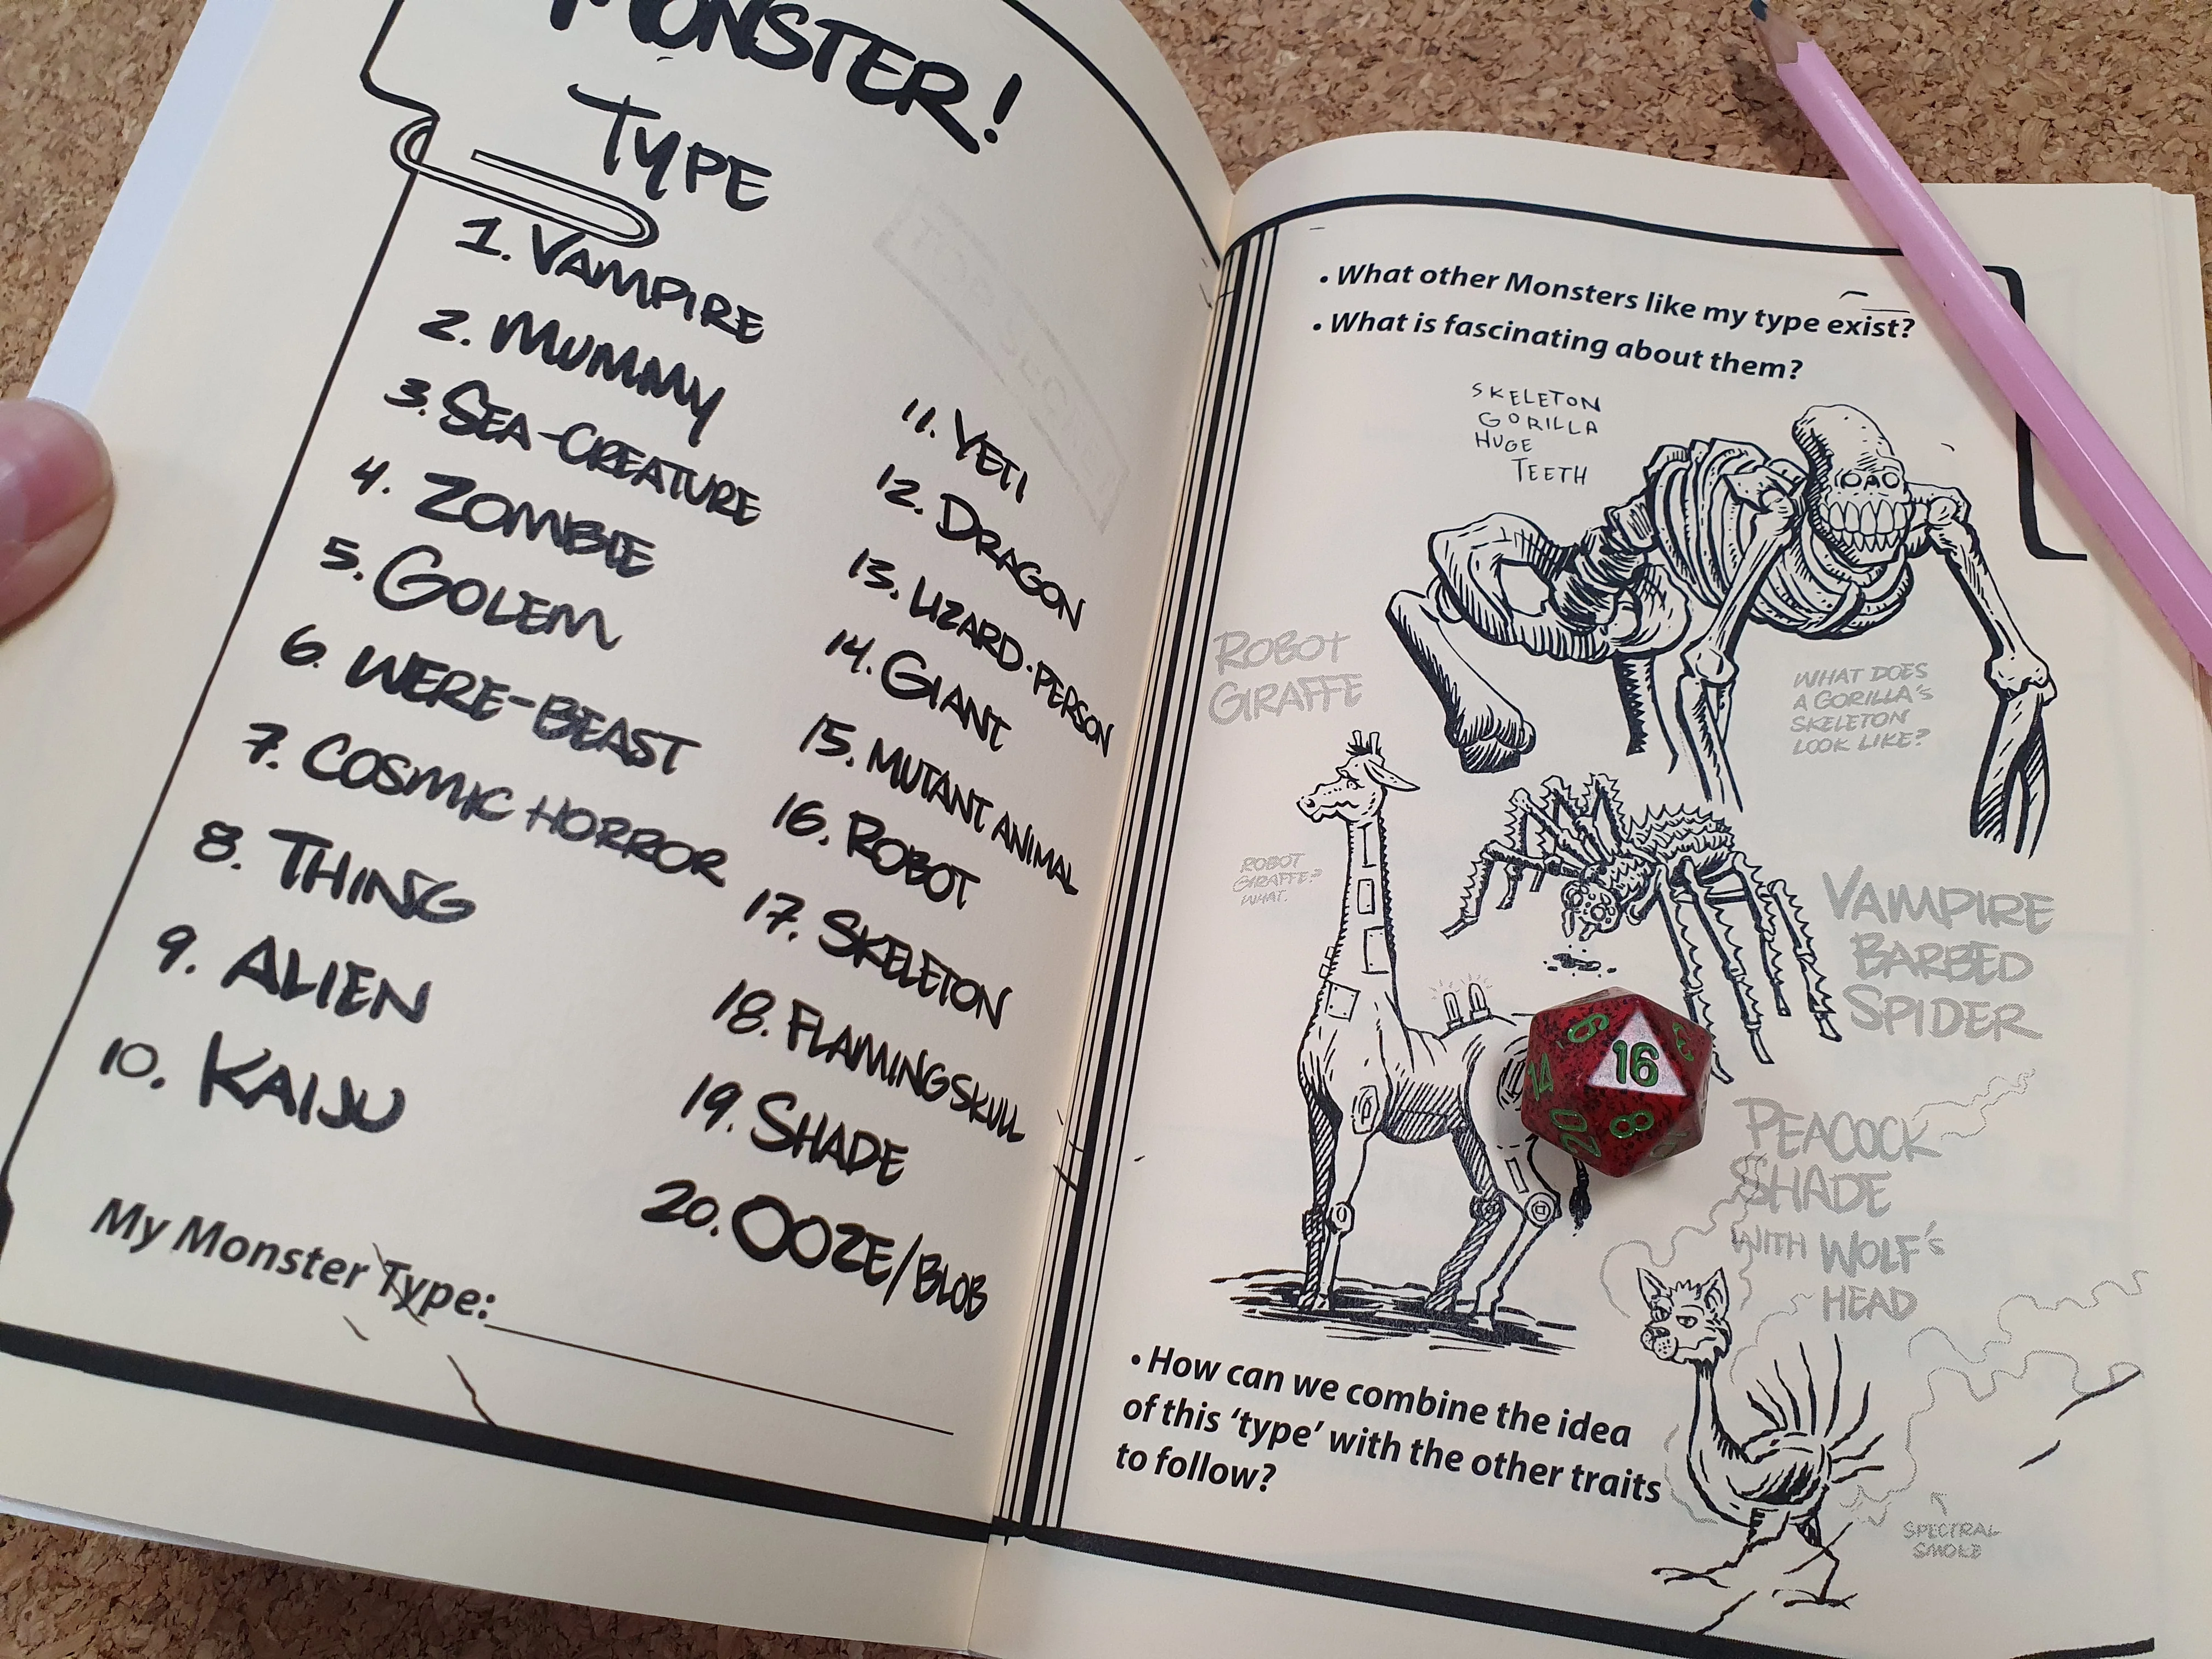 MONSTER!
TYPE
1. VAMPIRE
2. MUMMY
3. SEA-CREATURE
4. ZOMBIE
5. GOLEM
6. WERE-BEAST
7. COSMIC HORROR
8. THING
9. ALIEN
10. KAIJU
11. YETI
12. DRAGON
13. LIZARD-PERSON
14. GIANT
15. MUTANT ANIMAL
16. ROBOT
17. SKELETON
18. FLAMING SKULL
19. SHADE
20. OOZE/BLOB
My Monster Type:
TOP SECRET
• What other Monsters like my type exist?
• What is fascinating about them?
SKELETON
GORILLA
HUGE
TEETH
ROBOT
GIRAFFE
WHAT DOES
A GORILLA'S
SKELETON
LOOK LIKE?
ROBOT
GIRAFFE?
WHAT.
VAMPIRE
BARBED
SPIDER
16
9
3
14
20
8
PEACOCK
SHADE
WITH WOLF'S
HEAD
• How can we combine the idea
of this 'type' with the other traits
to follow?
SPECTRAL
SMOKE